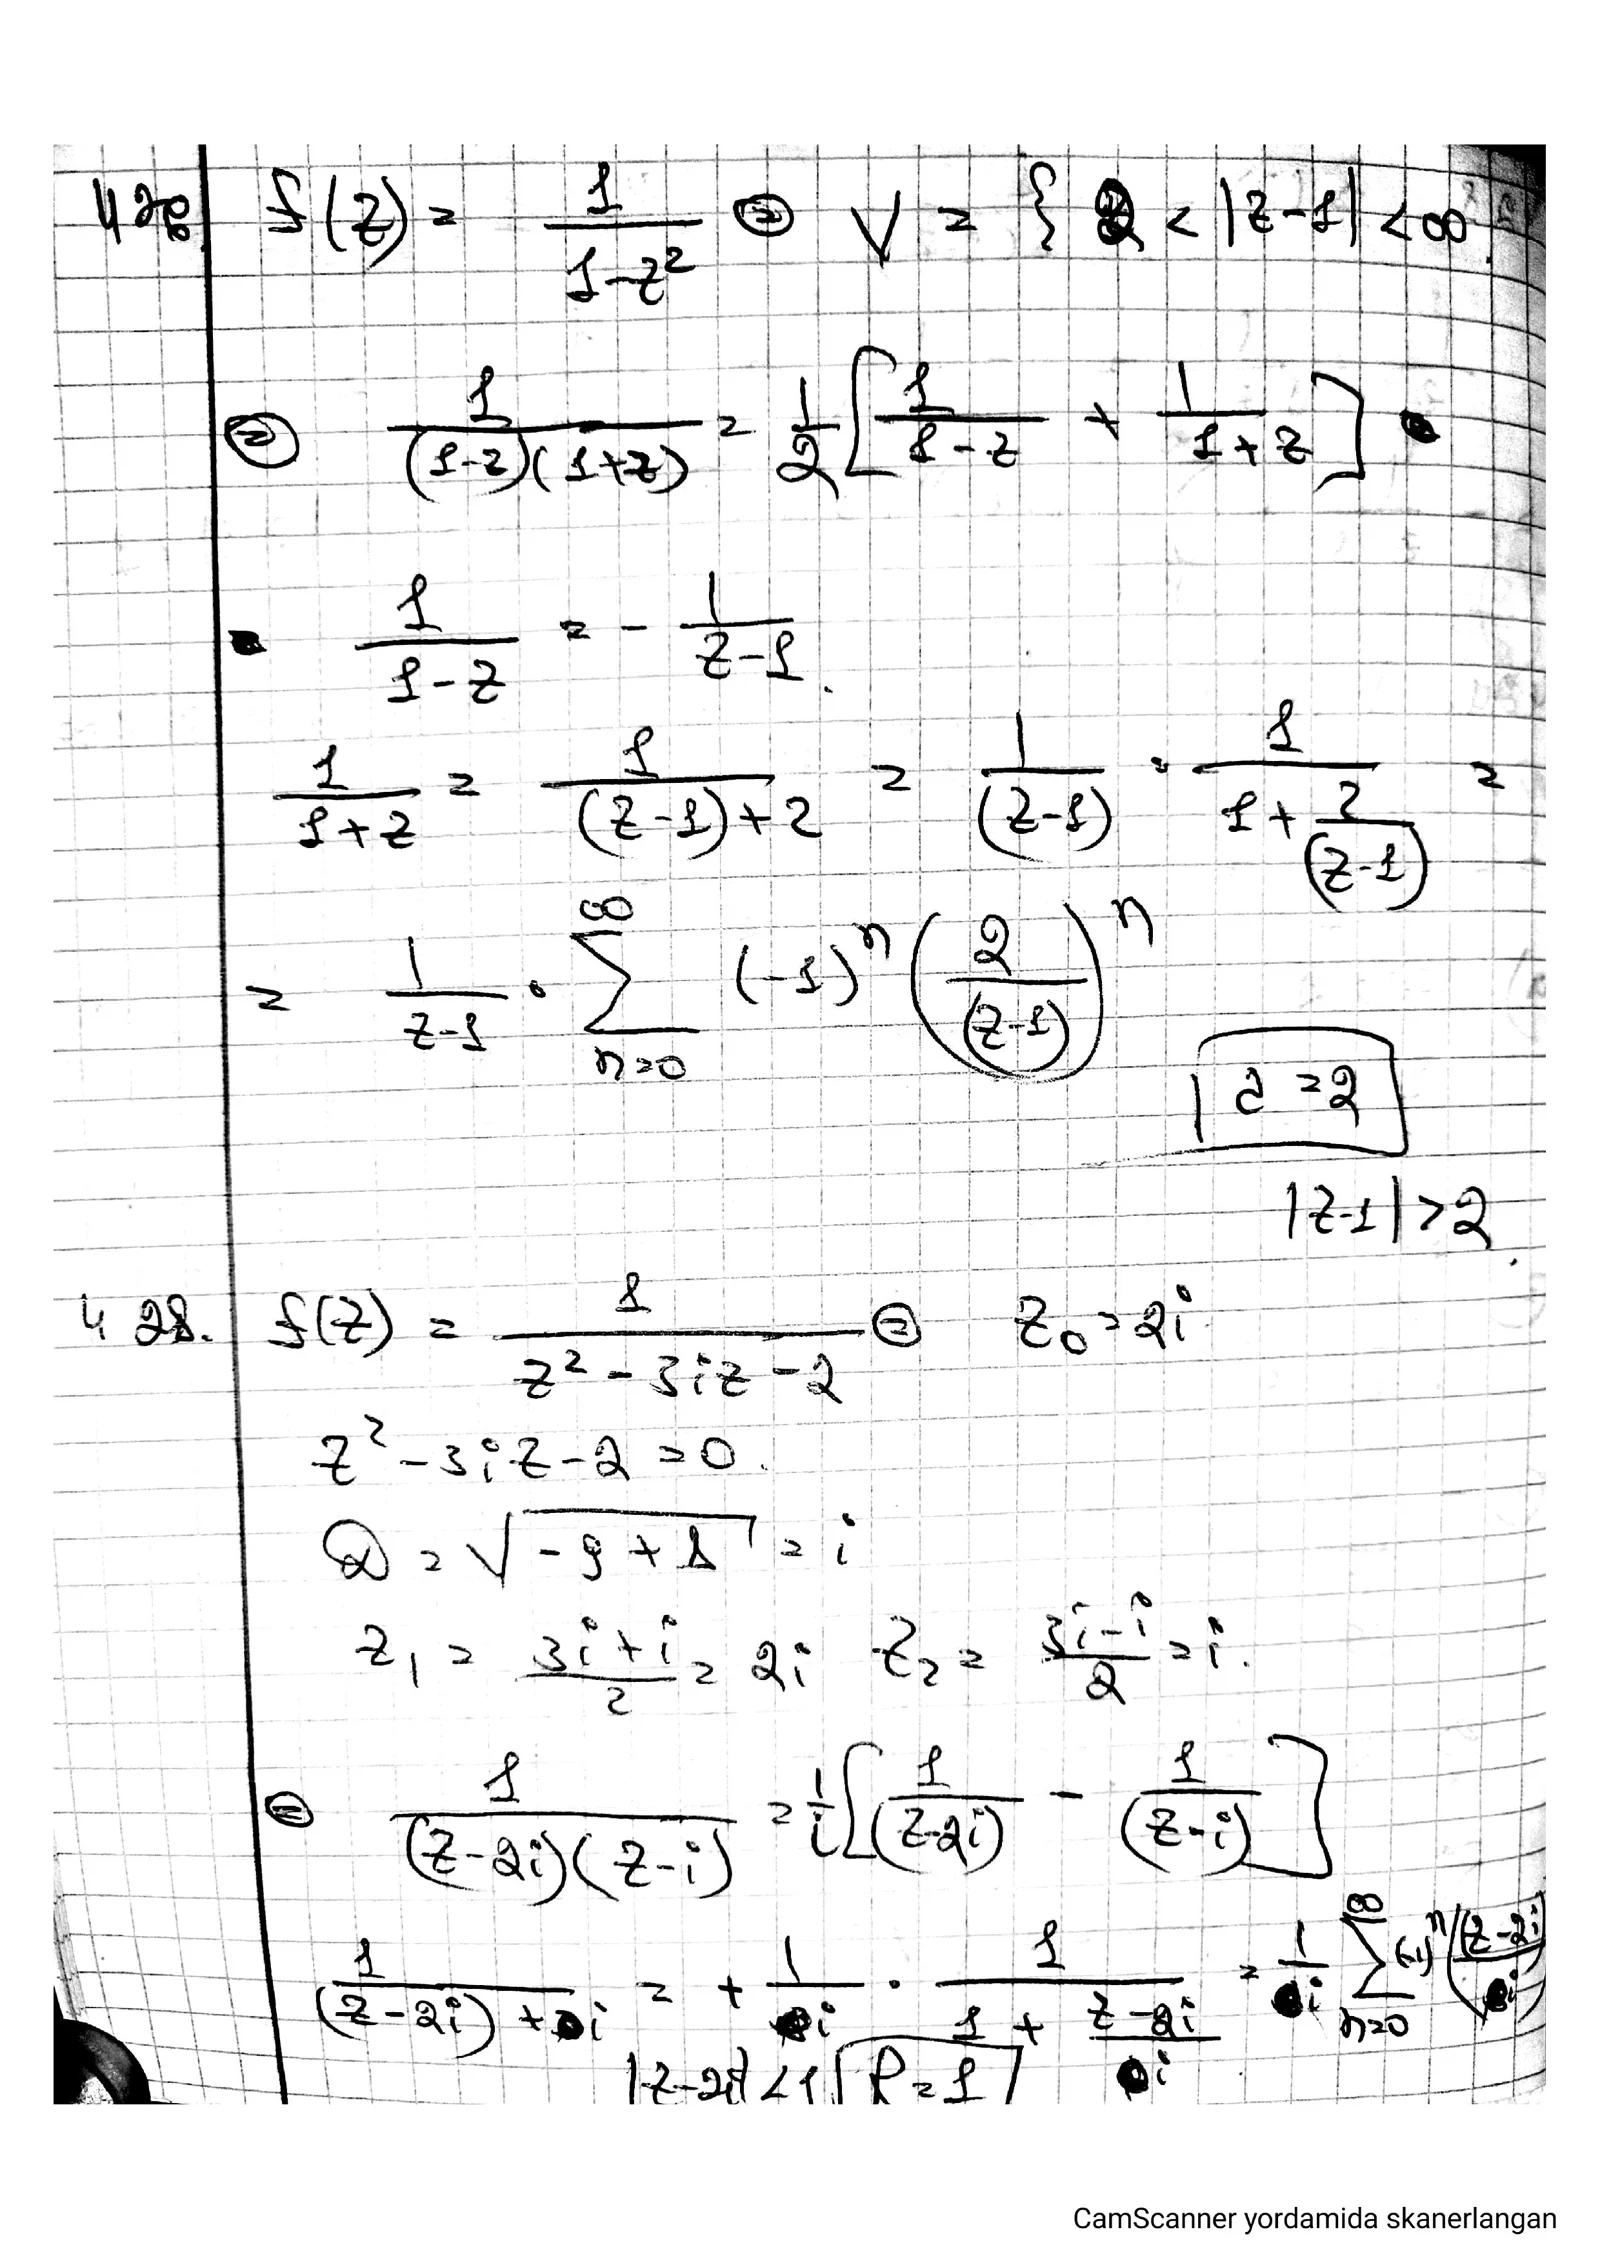 f(z) = 1/(1-z²) ⊜ V = { 2 < |z-1| < ∞
⊜ 1/((1-z)(1+z)) = 1/2 [ 1/(1-z) + 1/(1+z) ]
1/(1-z) = - 1/(z-1).
1/(1+z) = 1/((z-1)+2) = 1/(z-1) · 1/(1+2/(z-1)) =
= 1/(z-1) · ∑_{n=0}^{∞} (-1)^n (2/(z-1))^n
= 2
|z-1| > 2
428. f(z) = 1/(z²-3iz-2) ⊜ z₀ = 2i
z²-3iz-2 = 0.
D = √(-9+8) = i
z₁ = (3i+i)/2 = 2i z₂ = (3i-i)/2 = i.
⊜ 1/((z-2i)(z-i)) = 1/i [ 1/(z-2i) - 1/(z-i) ]
1/((z-2i)+i) = + 1/i · 1/(1+(z-2i)/i) = 1/i ∑_{n=0}^{∞} (-1)^n ((z-2i)/i)
|z-2i| < 1 R = 1
CamScanner yordamida skanerlangan